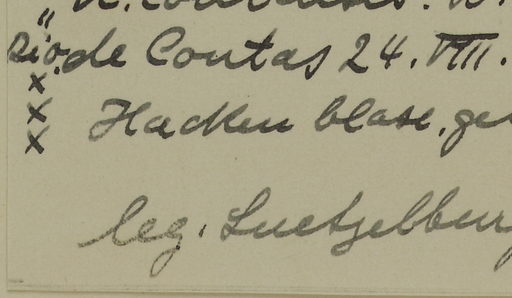 Rio de Contas 24. VIII.
x
x
x Hacken blase. ge
leg. Luetzelburg